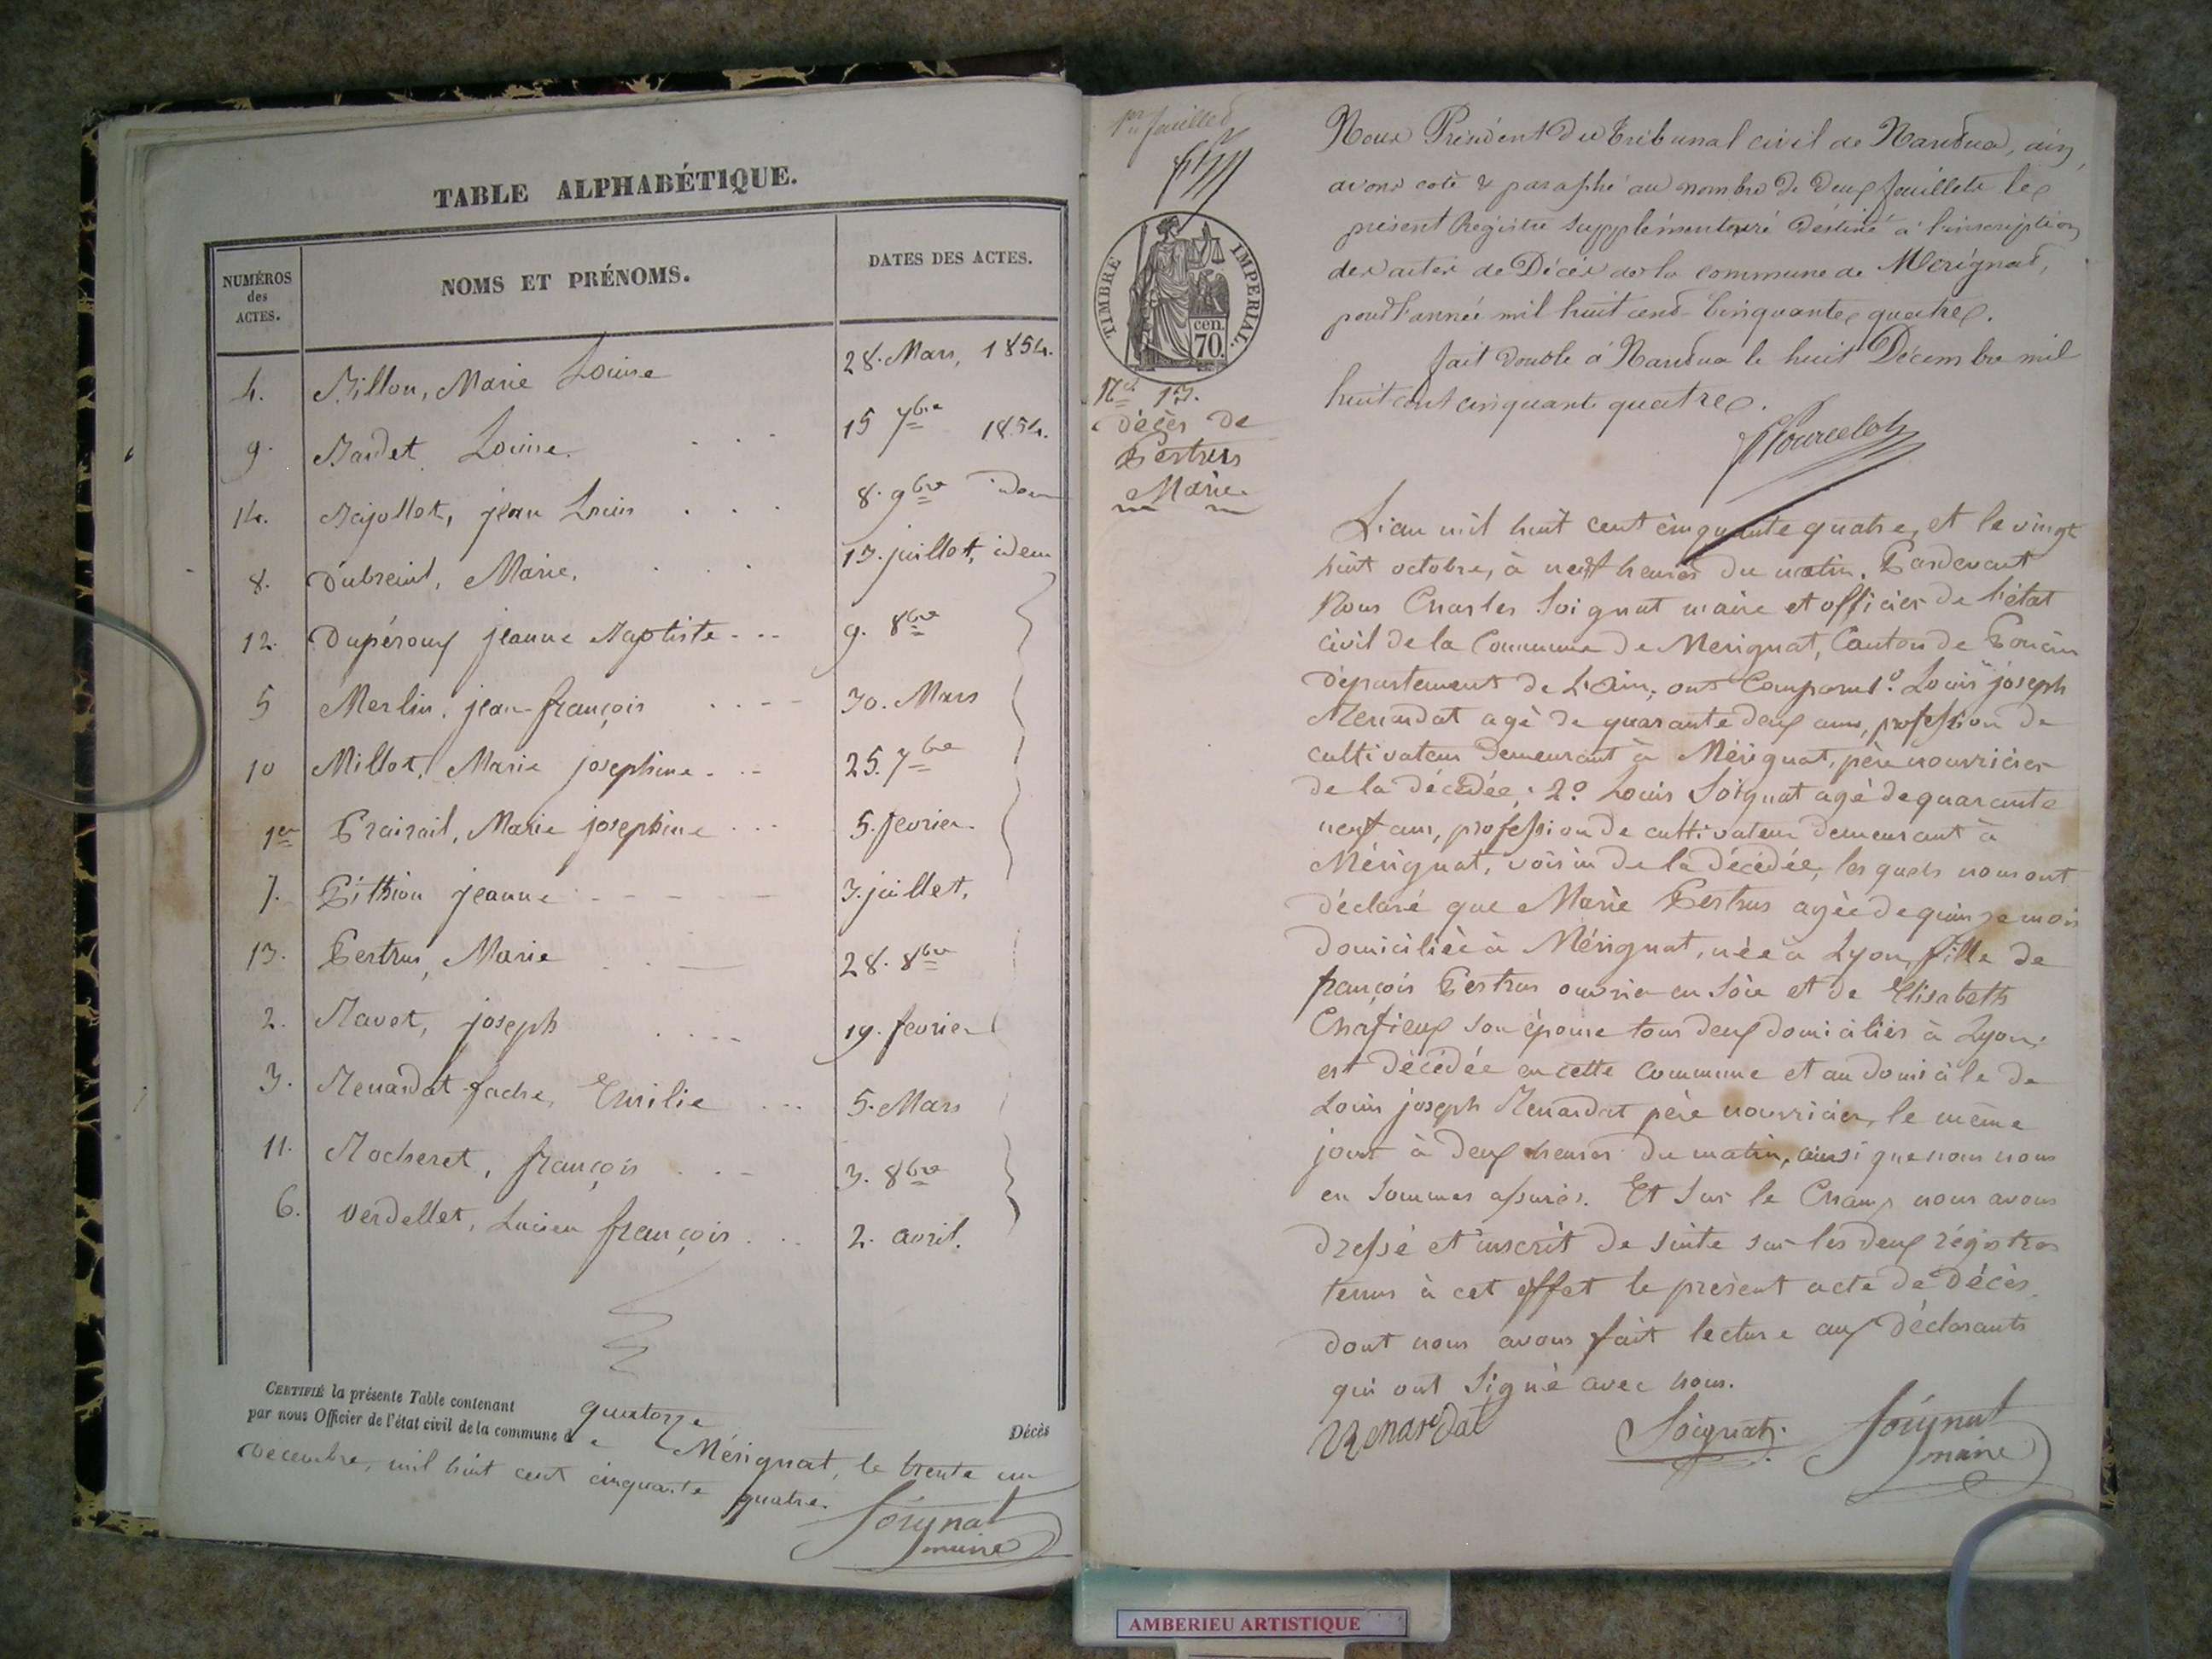 TABLE ALPHABÉTIQUE.
NUMÉROS des ACTES. NOMS ET PRÉNOMS. DATES DES ACTES.
4. Billon, Marie Louise 28. Mars, 1854.
9. Bardet Louise. 15 7bre 1854.
14. Bajollet, jean Louis 8. 9bre idem
8. Dubreint, Marie, 13. juillet, idem
12. Dupéroux jeanne Baptiste 9. 8bre
5 Merlin, jean-françois 30. Mars
10 Millot, Marie josephine 25. 7bre
1er Prairail, Marie josephine 5. fevrier
7. Pithion jeanne 3. juillet,
13. Pertrus, Marie 28. 8bre
2. Ravet, joseph 19. fevrier
3. Renardat-fache, Emilie 5. Mars
11. Rocheret, françois 3. 8bre
6. Verdellet, Lucien françois 2. avril.
CERTIFIÉ la présente Table contenant quatorze Décès
par nous Officier de l'état civil de la commune de Mérignat, le trente un
Décembre, mil huit cent cinquante quatre.
Soignat
maire
1er feuillet
TIMBRE IMPERIAL.
cen.
70.
No 13.
décès de
Pertrus
Marie
Nous Président du Tribunal civil de Nantua, ain,
avons coté & paraphé au nombre de deux feuillets le
présent Régistre supplémentaire destiné à l'inscription
des actes de Décès de la commune de Mérignat,
pour l'année mil huit cent-cinquante quatre.
fait double à Nantua le huit Décembre mil
huit cent cinquante quatre.
L'an mil huit cent cinquante quatre, et le vingt
huit octobre, à neuf heures du matin. Pardevant
Nous Charles Soignat maire et officier de l'état
civil de la Commune de Merignat, Canton de Poncin
département de L'Ain, ont Comparu 1o Louis joseph
Renardat agé de quarante deux ans, profession de
cultivateur demeurant à Mérignat, père nourricier
de la décédée; 2o Louis Soignat agé de quarante
neuf ans, profession de cultivateur demeurant à
Mérignat, voisin de la décédée, les quels nous ont
déclaré que Marie Pertrus agée de quinze mois
domiciliée à Mérignat, née à Lyon, fille de
françois Pertrus ouvrier en soie et de Elisabeth
Chafieux son épouse tous deux domiciliés à Lyon;
est décédée en cette Commune et au domicile de
Louis joseph Renardat père nourricier, le même
jour à deux heures du matin, ainsi que nous nous
en sommes assurés. Et sur le Champ nous avons
dressé et inscrit de suite sur les deux régistres
tenus à cet effet le présent acte de décès.
dont nous avons fait lecture aux déclarants
qui ont signé avec nous.
Renardat Soignat Soignat
maire
AMBERIEU ARTISTIQUE